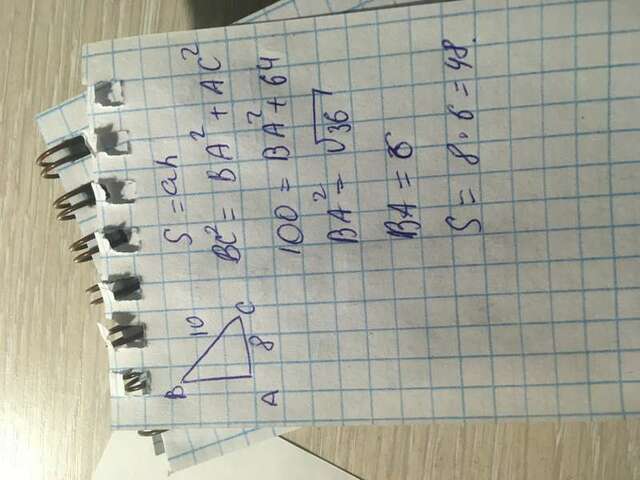 B
10
A
8
C
S = ah
BC² = BA² + AC²
100 = BA² + 64
BA² = √36
BA = 6
S = 8 · 6 = 48.